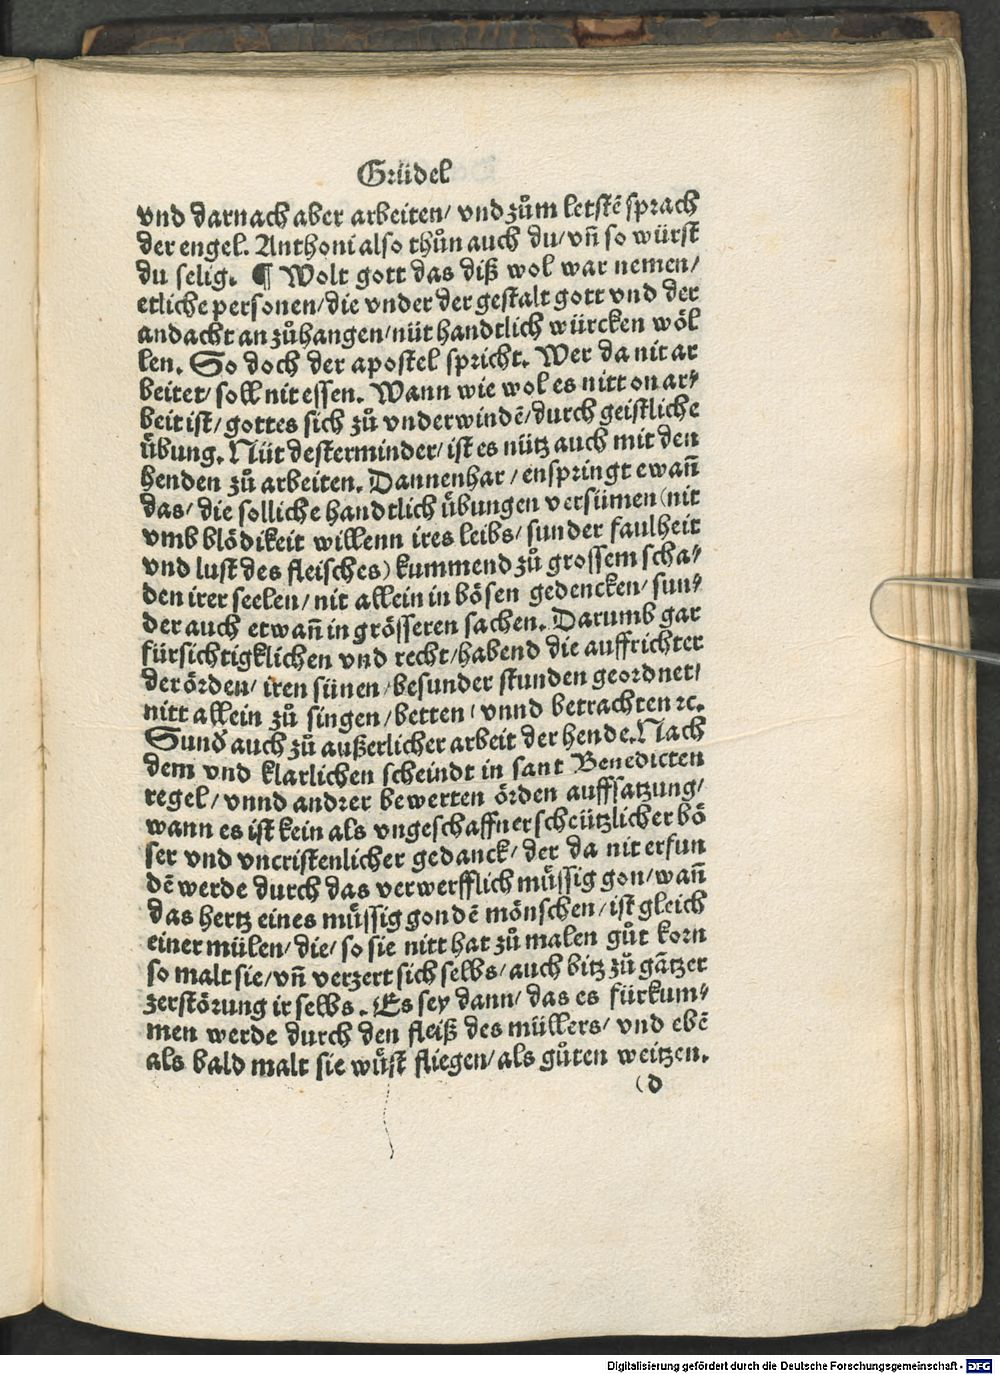 Grüdel
vnd darnach aber arbeiten/ vnd zům letstē sprach
der engel. Anthoni also thůn auch du/ vñ so würst
du selig. ¶ Wolt gott das diß wol war nemen/
etliche personen/ die vnder der gestalt gott vnd der
andacht an zůhangen/ nüt handtlich würcken wöl
len. So doch der apostel spricht. Wer da nit ar
beitet/ soll nit essen. Wann wie wol es nitt on ar⸗
beit ist/ gottes sich zů vnderwindē/ durch geistliche
übung. Nüt desterminder/ ist es nütz auch mit den
henden zů arbeiten. Dannenhar/ enspringt ewañ
das/ die solliche handtlich übungen versümen (nit
vmb blödikeit willenn ires leibs/ sunder faulheit
vnd lust des fleisches) kummend zů grossem scha⸗
den irer seelen/ nit allein in bösen gedencken/ sun⸗
der auch etwañ in grösseren sachen. Darumb gar
fürsichtigklichen vnd recht/ habend die auffrichter
der örden/ iren sünen/ besunder stunden geordnet/
nitt allein zů singen/ betten/ vnnd betrachten ꝛc.
Sunđ auch zů außerlicher arbeit der hende. Nach
dem vnd klarlichen scheindt in sant Benedicten
regel/ vnnd andrer bewerten örden auffsatzung/
wann es ist kein als vngeschaffner scheützlicher bö
ser vnd vncristenlicher gedanck/ der da nit erfun
dē werde durch das verwerfflich müssig gon/ wañ
das hertz eines müssig gondē mönschen/ ist gleich
einer mülen/ die/ so sie nitt hat zů malen gůt korn
so malt sie/ vñ verzert sich selbs/ auch bitz zů gātzer
zerstörung ir selbs. Es sey dann/ das es fürkum⸗
men werde durch den fleiß des müllers/ vnd ebē
als bald malt sie wüst fliegen/ als gůten weitzen.
(d
Digitalisierung gefördert durch die Deutsche Forschungsgemeinschaft - DFG